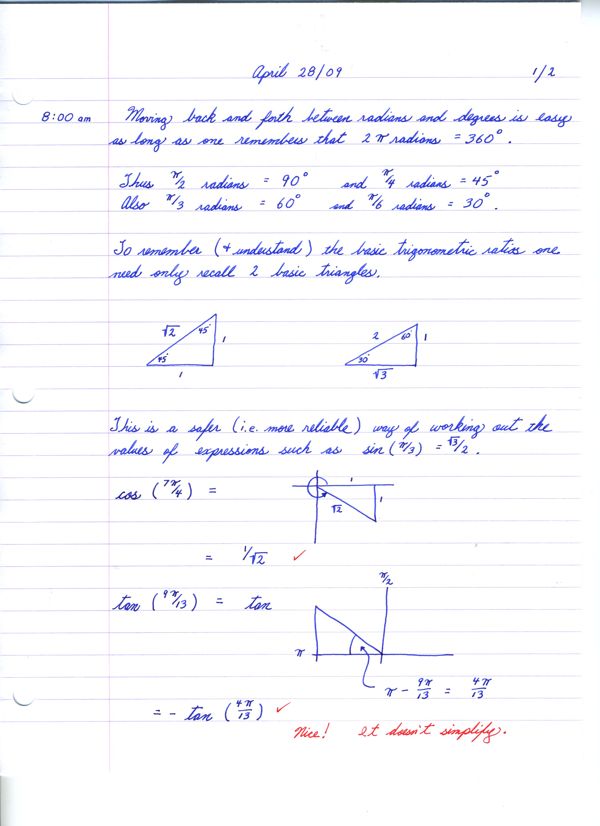 April 28/09 1/2
8:00 am Moving back and forth between radians and degrees is easy
as long as one remembers that 2π radians = 360°.
Thus π/2 radians = 90° and π/4 radians = 45°
Also π/3 radians = 60° and π/6 radians = 30°.
To remember (+ understand) the basic trigonometric ratios one
need only recall 2 basic triangles.
√2 45° 1 45° 1
2 60° 1 30° √3
This is a safer (i.e. more reliable) way of working out the
values of expressions such as sin(π/3) = √3/2.
cos (7π/4) = 1 1 √2
= 1/√2 ✓
tan (9π/13) = tan π/2 π
π - 9π/13 = 4π/13
= - tan (4π/13) ✓
Nice! It doesn't simplify.